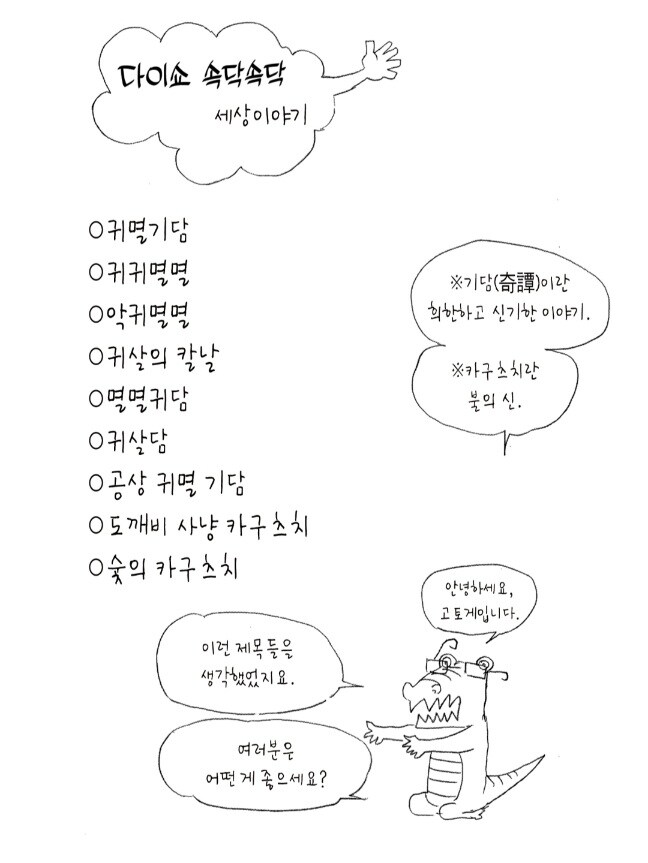 다이쇼 속닥속닥
세상이야기
○귀멸기담
○귀귀멸멸
○악귀멸멸
○귀살의 칼날
○멸멸귀담
○귀살담
○공상 귀멸 기담
○도깨비 사냥 카구츠치
○숯의 카구츠치
※기담(奇譚)이란
희한하고 신기한 이야기.
※카구츠치란
불의 신.
안녕하세요,
고토게입니다.
이런 제목들을
생각했었지요.
여러분은
어떤 게 좋으세요?